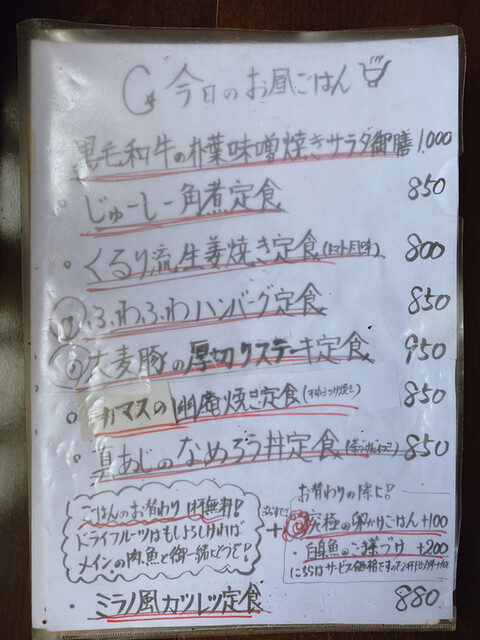 今日のお昼ごはん
黒毛和牛の朴葉味噌焼きサラダ御膳 1,000
・じゅーしー角煮定食 850
・くるり流生姜焼き定食(トマト風味) 800
ふわふわハンバーグ定食 850
大麦豚の厚切りステーキ定食 950
・カマスの幽庵焼き定食 850
・真あじのなめろう丼定食 850
ごはんのお替わり1杯無料!
ドライフルーツはもしよろしければ
メインの肉魚と御一緒にどうぞ!
+
お替わりの際に!
究極の卵かけごはん +100
・白身魚のご茶づけ +200
こちらはサービス価格ですので
・ミラノ風カツレツ定食 880